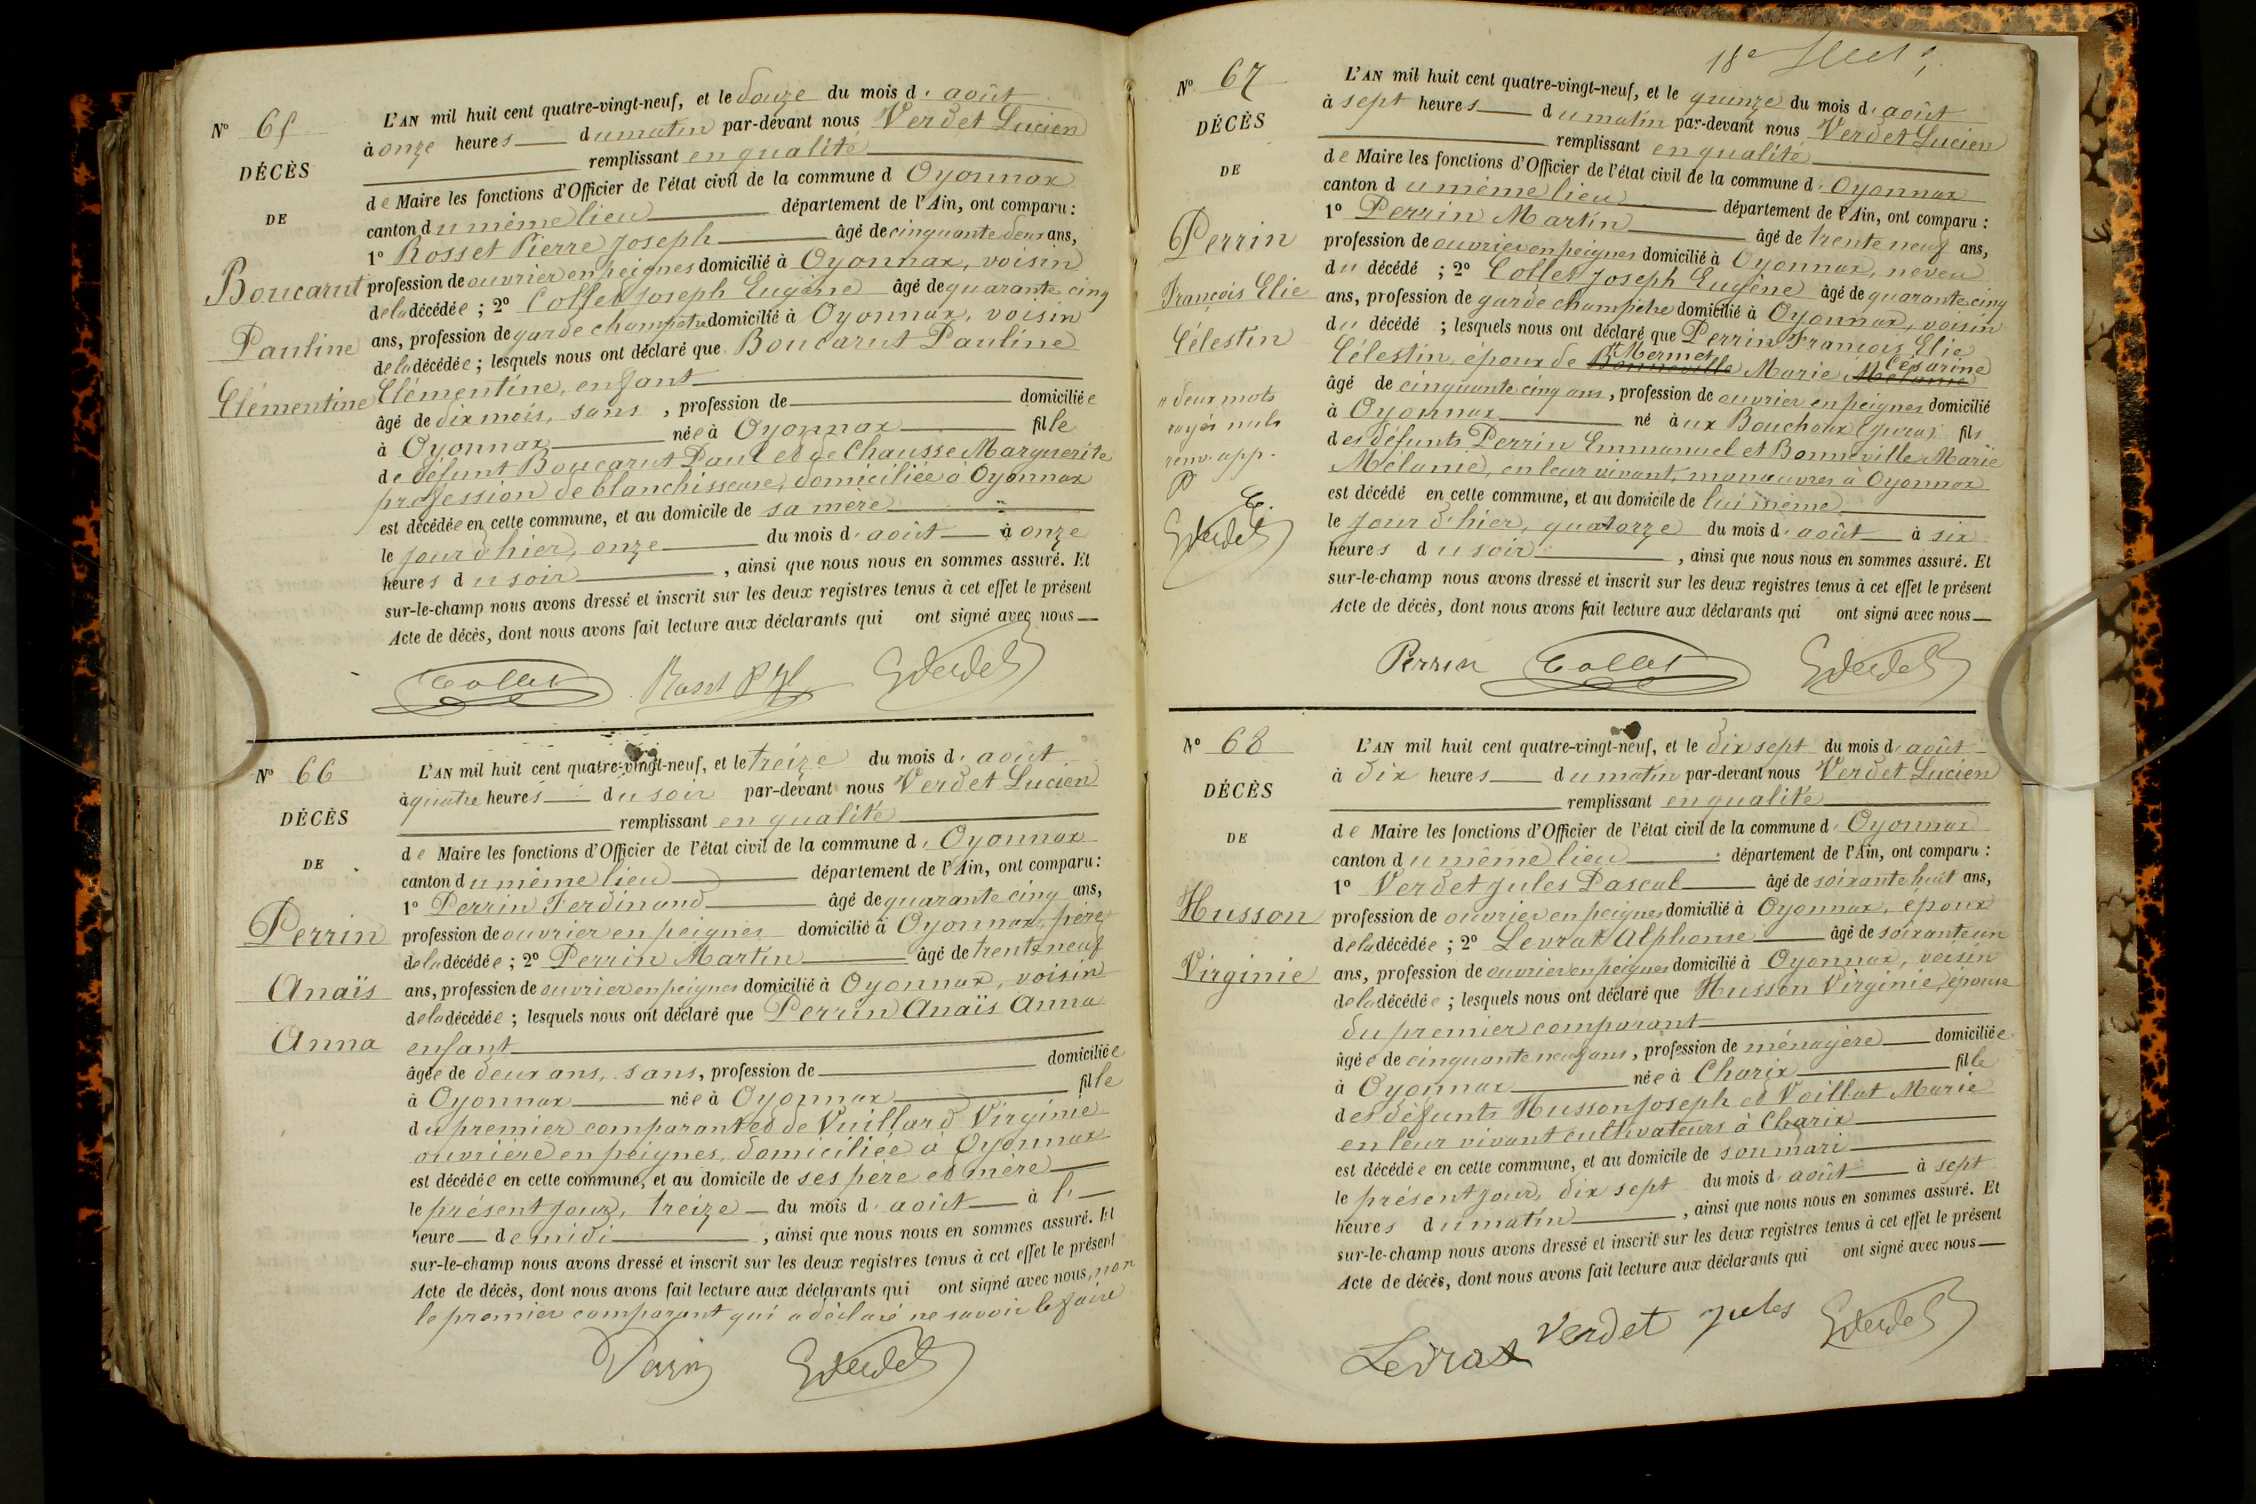 N° 65
DÉCÈS
DE
Boucarut
Pauline
Clémentine
L'AN mil huit cent quatre-vingt-neuf, et le douze du mois d'août
à onze heures du matin par-devant nous Verdet Lucien
remplissant en qualité
de Maire les fonctions d'Officier de l'état civil de la commune d Oyonnax
canton du même lieu département de l'Ain, ont comparu :
1° Rosset Pierre Joseph âgé de cinquante deux ans,
profession de ouvrier en peignes domicilié à Oyonnax, voisin
de la décédée ; 2° Collet Joseph Eugène âgé de quarante cinq
ans, profession de garde champêtre domicilié à Oyonnax, voisin
de la décédée ; lesquels nous ont déclaré que Boucarut Pauline
Clémentine, enfant
âgé de dix mois, sans, profession de domiciliée
à Oyonnax née à Oyonnax fille
de défunt Boucarut Paul et de Chausse Marguerite
profession de blanchisseuse, domiciliée à Oyonnax
est décédée en cette commune, et au domicile de sa mère
le jour d'hier, onze du mois d'août à onze
heures du soir, ainsi que nous nous en sommes assuré. Et
sur-le-champ nous avons dressé et inscrit sur les deux registres tenus à cet effet le présent
Acte de décès, dont nous avons fait lecture aux déclarants qui ont signé avec nous
Collet Rosset P. J. LVerdet
N° 66
DÉCÈS
DE
Perrin
Anaïs
Anna
L'AN mil huit cent quatre-vingt-neuf, et le treize du mois d'août
à quatre heures du soir par-devant nous Verdet Lucien
remplissant en qualité
de Maire les fonctions d'Officier de l'état civil de la commune d'Oyonnax
canton du même lieu département de l'Ain, ont comparu :
1° Perrin Ferdinand âgé de quarante cinq ans,
profession de ouvrier en peignes domicilié à Oyonnax, père
de la décédée ; 2° Perrin Martin âgé de trente neuf
ans, profession de ouvrier en peignes domicilié à Oyonnax, voisin
de la décédée ; lesquels nous ont déclaré que Perrin Anaïs Anna
enfant
âgée de deux ans, sans, profession de domiciliée
à Oyonnax née à Oyonnax fille
du premier comparant et de Vuillard Virginie
ouvrière en peignes, domiciliée à Oyonnax
est décédée en cette commune, et au domicile de ses père et mère
le présent jour, treize du mois d'août à l'
heure de midi, ainsi que nous nous en sommes assuré. Et
sur-le-champ nous avons dressé et inscrit sur les deux registres tenus à cet effet le présent
Acte de décès, dont nous avons fait lecture aux déclarants qui ont signé avec nous, non
le premier comparant qui a déclaré ne savoir le faire
Perrin LVerdet
18e
N° 67
DÉCÈS
DE
Perrin
François Elie
Célestin
deux mots
rayés nuls
renv. app.
P
C.
LVerdet
L'AN mil huit cent quatre-vingt-neuf, et le quinze du mois d'août
à sept heures du matin par-devant nous Verdet Lucien
remplissant en qualité
de Maire les fonctions d'Officier de l'état civil de la commune d'Oyonnax
canton du même lieu département de l'Ain, ont comparu :
1° Perrin Martin âgé de trente neuf ans,
profession de ouvrier en peignes domicilié à Oyonnax, neveu
du décédé ; 2° Collet Joseph Eugène âgé de quarante cinq
ans, profession de garde champêtre domicilié à Oyonnax, voisin
du décédé ; lesquels nous ont déclaré que Perrin François Elie
Célestin, époux de Bonneville Mermet Marie Mélanie Césarine
âgé de cinquante cinq ans, profession de ouvrier en peignes domicilié
à Oyonnax né à ux Bouchoux (Jura) fils
des défunts Perrin Emmanuel et Bonneville Marie
Mélanie, en leur vivant, manœuvres à Oyonnax
est décédé en cette commune, et au domicile de lui même
le jour d'hier, quatorze du mois d'août à six
heures du soir, ainsi que nous nous en sommes assuré. Et
sur-le-champ nous avons dressé et inscrit sur les deux registres tenus à cet effet le présent
Acte de décès, dont nous avons fait lecture aux déclarants qui ont signé avec nous
Perrin Collet LVerdet
N° 68
DÉCÈS
DE
Husson
Virginie
L'AN mil huit cent quatre-vingt-neuf, et le dix sept du mois d'août
à dix heures du matin par-devant nous Verdet Lucien
remplissant en qualité
de Maire les fonctions d'Officier de l'état civil de la commune d'Oyonnax
canton du même lieu département de l'Ain, ont comparu :
1° Verdet Jules Pascal âgé de soixante huit ans,
profession de ouvrier en peignes domicilié à Oyonnax, époux
de la décédée ; 2° Levrat Alphonse âgé de soixante un
ans, profession de ouvrier en peignes domicilié à Oyonnax, voisin
de la décédée ; lesquels nous ont déclaré que Husson Virginie, épouse
du premier comparant
âgée de cinquante neuf ans, profession de ménagère domiciliée
à Oyonnax née à Charix fille
des défunts Husson Joseph et Voillat Marie
en leur vivant cultivateurs à Charix
est décédée en cette commune, et au domicile de son mari
le présent jour, dix sept du mois d'août à sept
heures du matin, ainsi que nous nous en sommes assuré. Et
sur-le-champ nous avons dressé et inscrit sur les deux registres tenus à cet effet le présent
Acte de décès, dont nous avons fait lecture aux déclarants qui ont signé avec nous
Levrat Verdet jules LVerdet